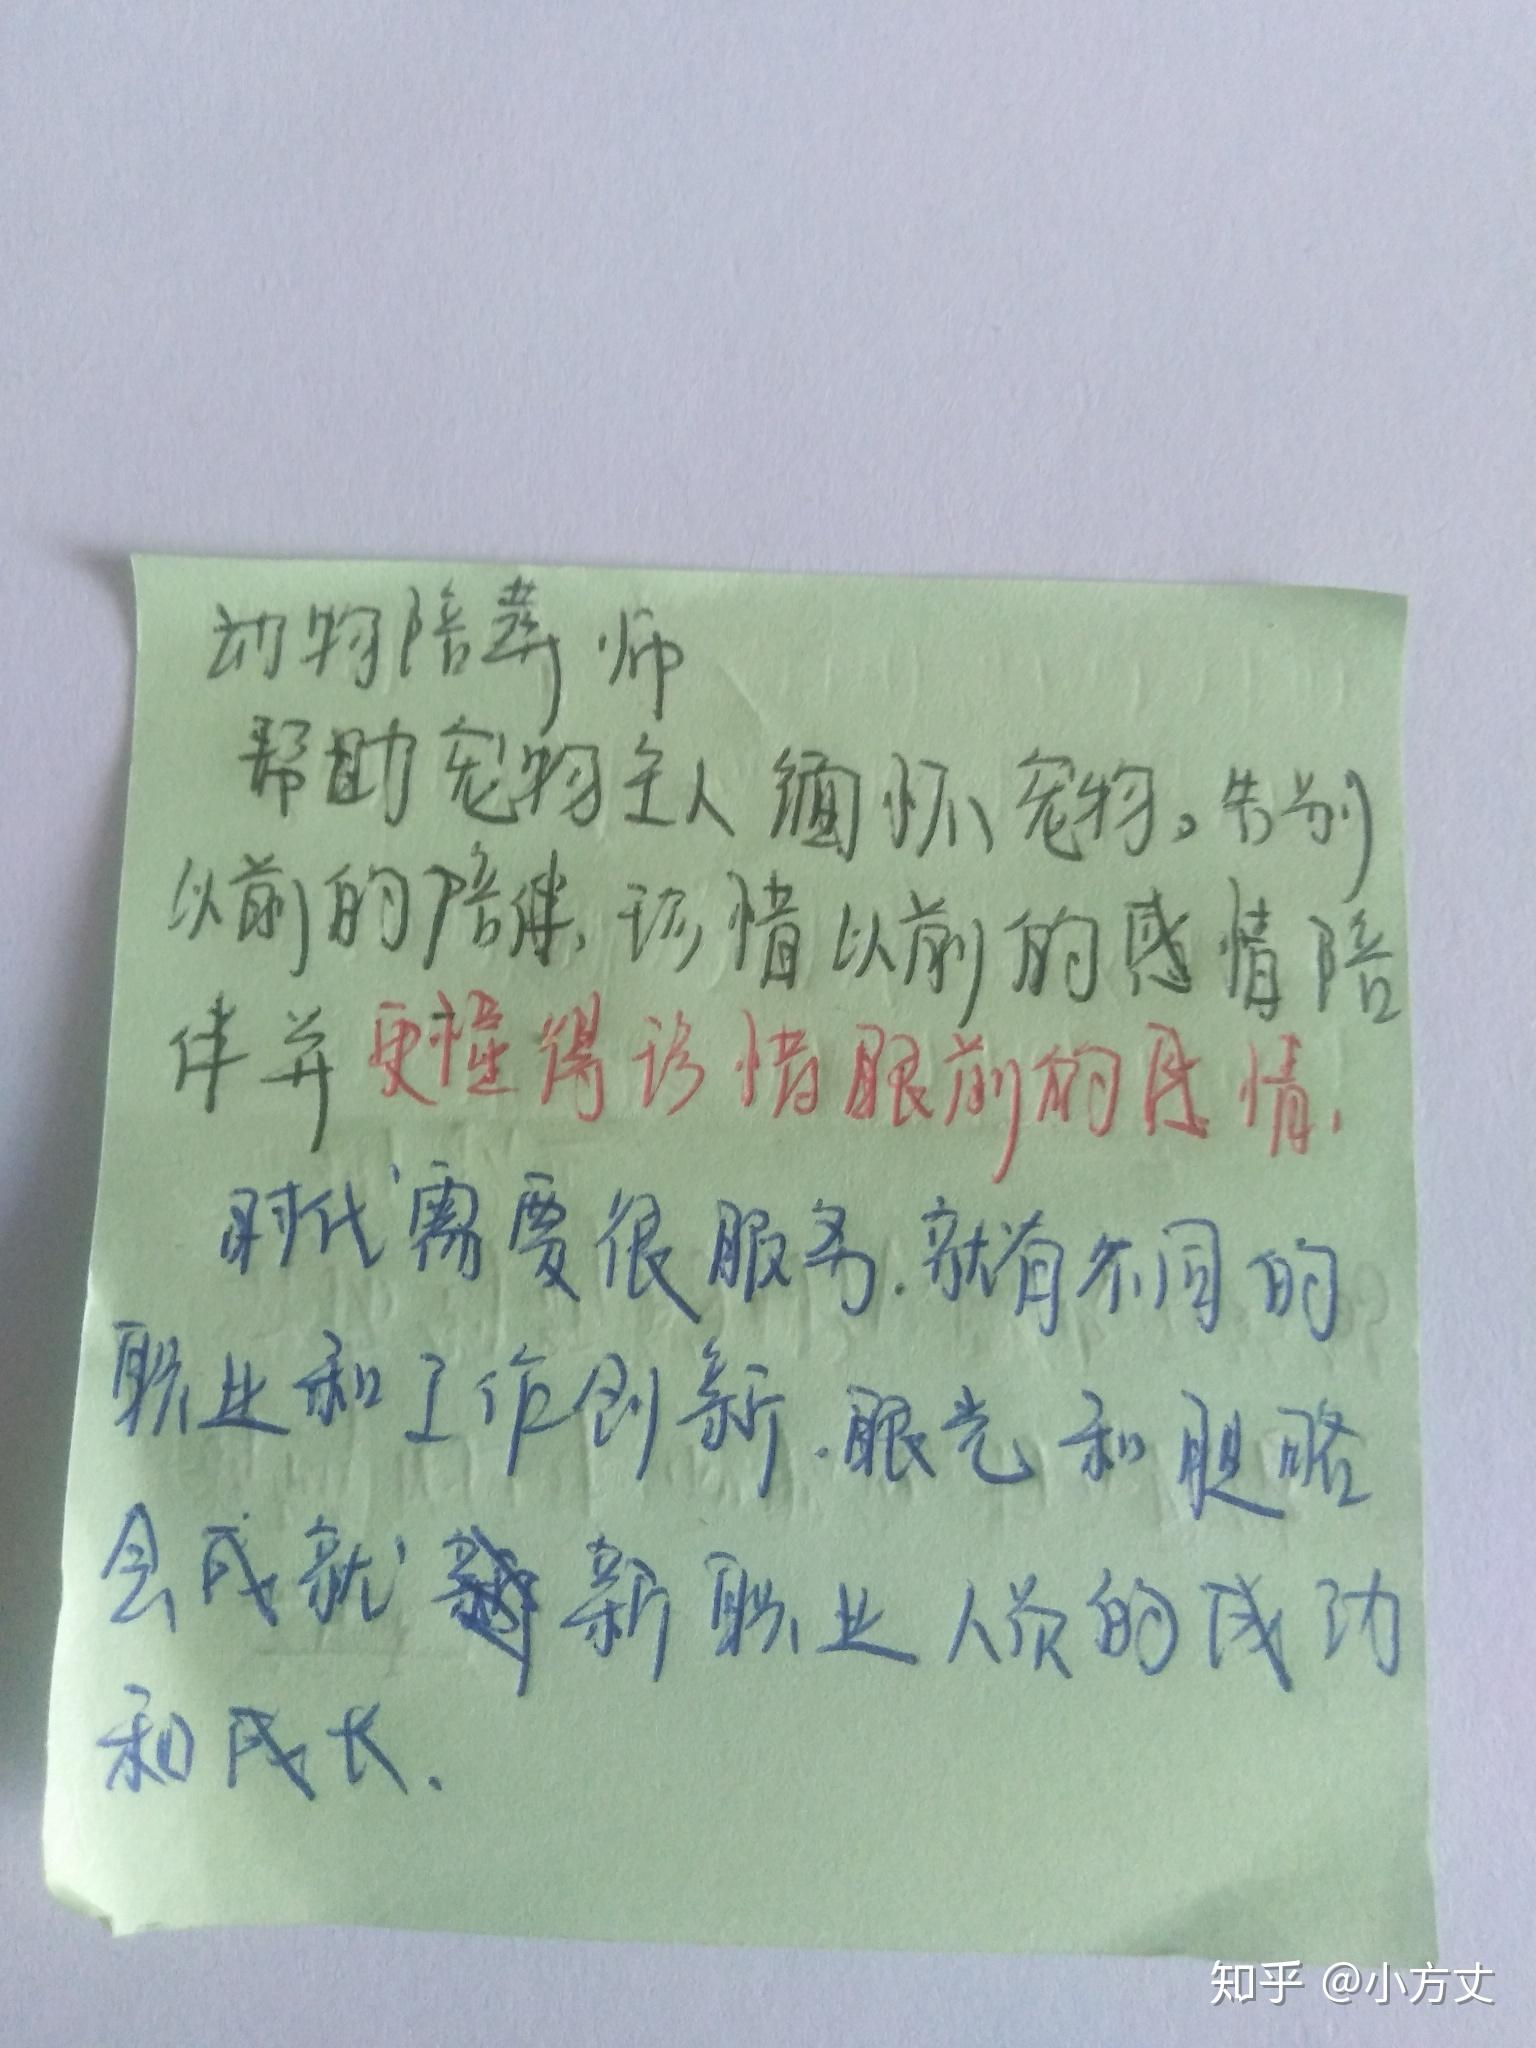 动物陪葬师
帮助宠物主人缅怀宠物。告别
以前的陪伴,珍惜以前的感情陪
伴并更懂得珍惜眼前的感情.
时代需要很服务.就有不同的
职业和工作创新.眼光和胆略
会成就新职业人员的成功
和成长.
知乎 @小方丈